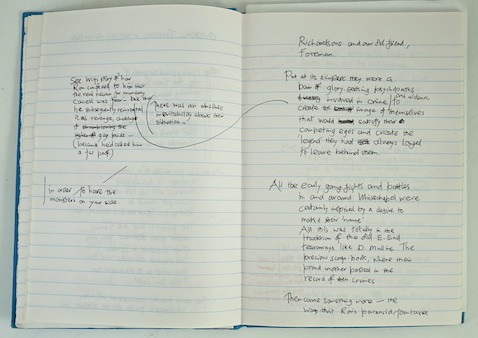 See Wips story of how
Ron confessed to him that
the real reason for murdering
Cornell was fear. But that
he subsequently reinvented
it as revenge,
gay pride —
(because he'd called him
a fat poof)
There was an absolute
inevitability about their
situation.
In order to have the
monsters on your side
Richardsons and our old friend,
Foreman.
Put at its simplest they were a
pair of glory-seeking psychopaths
involved in crime and violence to
create an image of themselves
that would satisfy their
competing egos and create the
legend they had always longed
to leave behind them.
All the early gang fights and battles
in and around Whitechapel were
certainly inspired by a desire to
make their 'name'
All this was totally in the
tradition of the old E. End
tearaways like D. Mullins. The
precious scrap books, where their
proud mother pasted in the
record of their crimes
Then came something more — the
way that Ron's paranoid fantasies